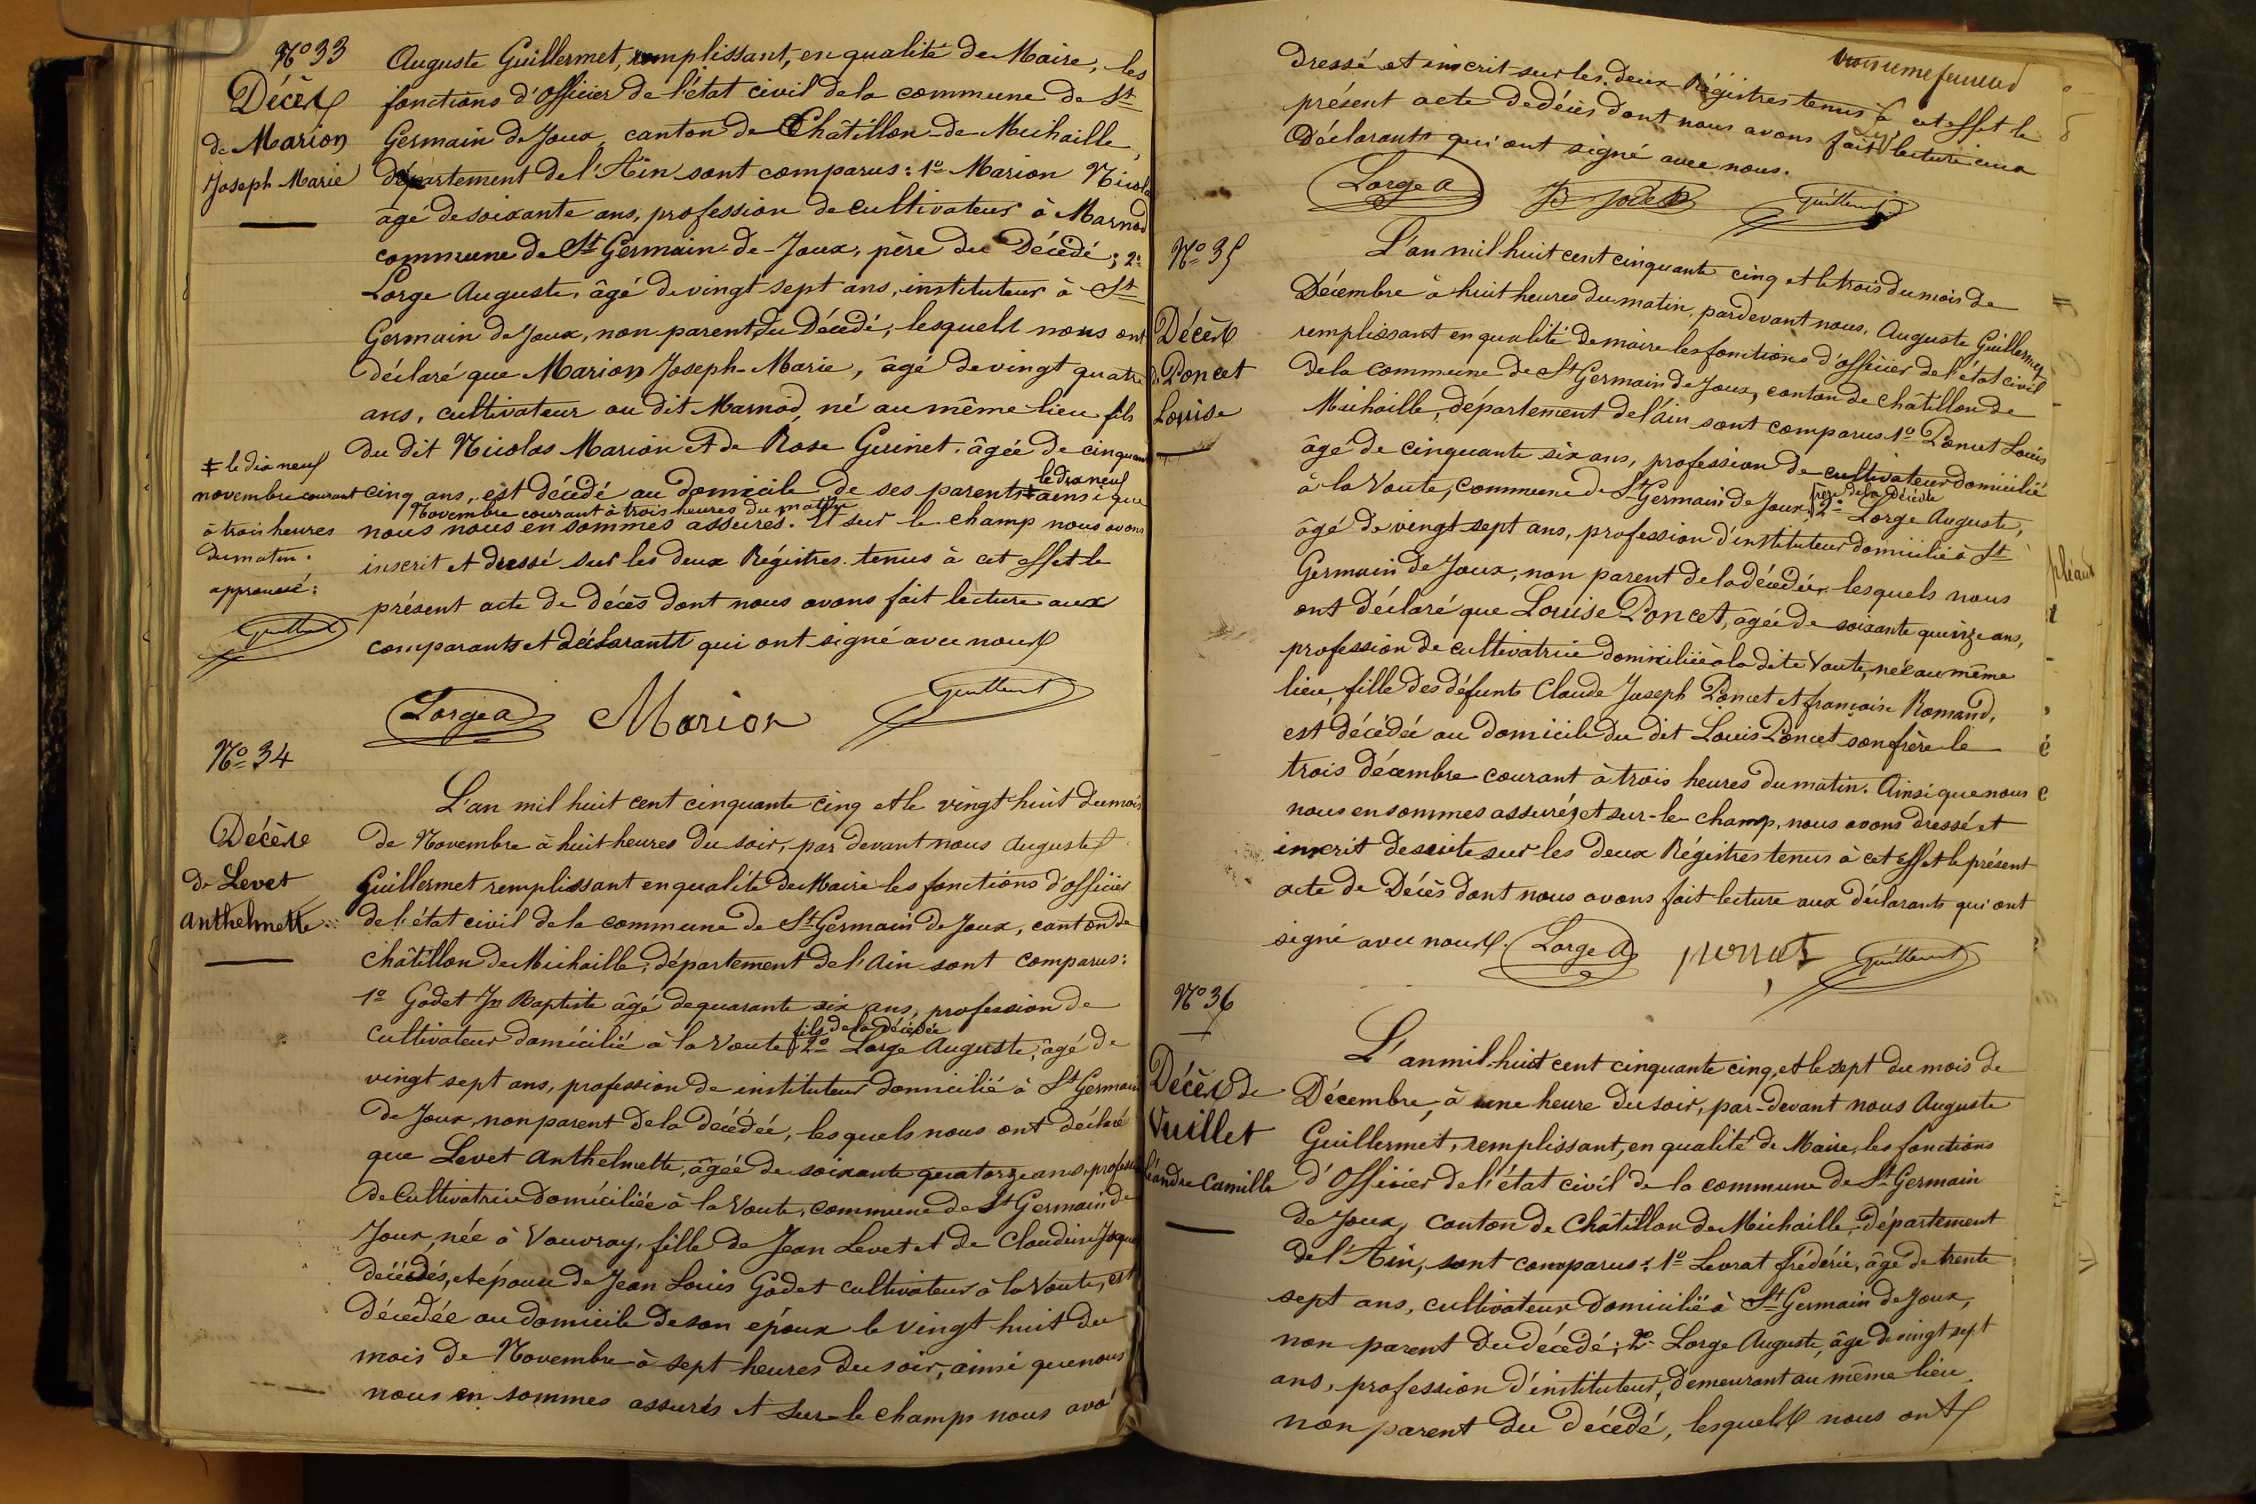 N° 33
Décès
de Marion
Joseph Marie
Auguste Guillermet, remplissant, en qualité de Maire, les
fonctions d'Officier de l'état civil de la commune de St
Germain de Joux, canton de Châtillon-de-Michaille,
département de l'Ain sont comparus: 1° Marion Nicolas
âgé de soixante ans, profession de cultivateur à Marnod
commune de St Germain-de-Joux, père du Décédé; 2°
Lorge Auguste, âgé de vingt sept ans, instituteur à St
Germain de Joux, non parent du Décédé, lesquels nous ont
déclaré que Marion Joseph-Marie, âgé de vingt quatre
ans, cultivateur au dit Marnod, né au même lieu fils
du dit Nicolas Marion et de Rose Guinet, âgée de cinquante
cinq ans, est décédé au domicile de ses parents le dix neuf ainsi que
Novembre courant à trois heures du matin
nous nous en sommes assurés. Et sur le champ nous avons
inscrit et dressé sur les deux Régistres tenus à cet effet le
présent acte de décès dont nous avons fait lecture aux
comparants et déclarants qui ont signé avec nous
‡ le dix neuf
novembre courant
à trois heures
du matin.
approuvé:
Guillermet
Lorge A Marion Guillermet
N° 34
Décès
de Levet
Anthelmette
L'an mil huit cent cinquante cinq et le vingt huit du mois
de Novembre à huit heures du soir, par devant nous Auguste
Guillermet remplissant en qualité de Maire les fonctions d'officier
de l'état civil de la commune de St Germain de Joux, canton de
Châtillon de Michaille, département de l'Ain sont comparus:
1° Godet Jn Baptiste âgé de quarante six ans, profession de
cultivateur domicilié à la Voute fils de la décédée 2° Lorge Auguste, âgé de
vingt sept ans, profession de instituteur domicilié à St Germain
de Joux, non parent de la décédée, lesquels nous ont déclaré
que Levet Anthelmette, âgée de soixante quatorze ans, profession
de cultivatrice domiciliée à la Voute, commune de St Germain de
Joux, née à Vouvray, fille de Jean Levet et de Claudine
décédés, et épouse de Jean Louis Godet cultivateur à la Voute, est
décédée au domicile de son époux le vingt huit du
mois de Novembre à sept heures du soir, ainsi que nous
nous en sommes assurés et sur le champs nous avo
dressé et inscrit sur les deux Régistres tenus à cet effet le
présent acte de décès dont nous avons fait lecture aux
Déclarants qui ont signé avec nous.
Lorge A JB Godet Guillermet
N° 35
Décès
de Poncet
Louise
L'an mil huit cent cinquante cinq et le trois du mois de
Décembre à huit heures du matin, pardevant nous, Auguste Guillermet
remplissant en qualité de maire les fonctions d'officier de l'état civil
de la commune de St Germain de Joux, canton de Châtillon de
Michaille, département de l'Ain sont comparus 1° Poncet Louis
âgé de cinquante six ans, profession de cultivateur domicilié
à la Voute, commune de St Germain de Joux, frère de la décédée 2° Lorge Auguste,
âgé de vingt sept ans, profession d'instituteur domicilié à St
Germain de Joux, non parent de la décédée lesquels nous
ont déclaré que Louise Poncet, âgée de soixante quinze ans,
profession de cultivatrice domiciliée à la dite Voute, née au même
lieu, fille des défunts Claude Joseph Poncet et françoise Romand,
est décédée au domicile du dit Louis Poncet son frère le
trois décembre courant à trois heures du matin. Ainsi que nous
nous en sommes assurés et sur-le-champ, nous avons dressé et
inscrit de suite sur les deux Régistres tenus à cet effet le présent
acte de Décès dont nous avons fait lecture aux déclarants qui ont
signé avec nous. Lorge A Guillermet
N° 36
Décès de
Vuillet
Léandre Camille
L'an mil-huit cent cinquante cinq, et le sept du mois de
Décembre, à une heure du soir, par-devant nous Auguste
Guillermet, remplissant, en qualité de Maire, les fonctions
d'Officier de l'état civil de la commune de St Germain
de Joux, canton de Châtillon de Michaille, département
de l'Ain, sont comparus: 1° Levrat frédéric, âgé de trente
sept ans, cultivateur domicilié à St Germain de Joux,
non parent du décédé; 2° Lorge Auguste, âgé de vingt sept
ans, profession d'instituteur, demeurant au même lieu,
non parent du décédé, lesquels nous ont